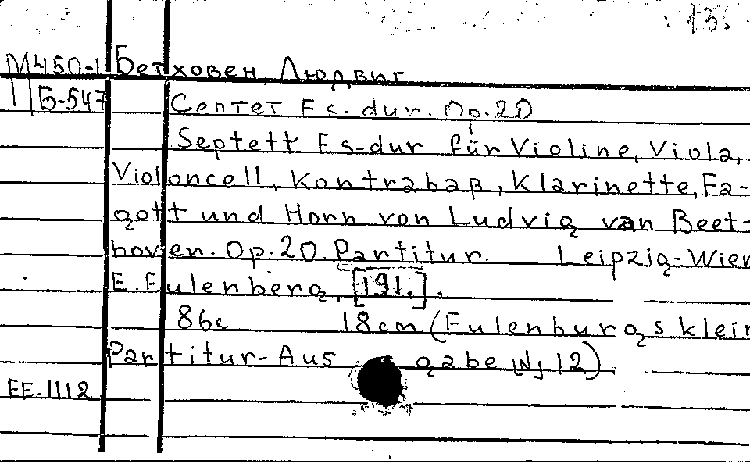 135
М450-1 Бетховен, Людвиг
Б-547 Септет Es-dur. Op.20
Septett Es-dur für Violine, Viola,
Violoncell, Kontrabaß, Klarinette, Fa-
gott und Horn von Ludvig van Beet-
hoven. Op.20. Partitur. Leipzig-Wien
E. Eulenberg, [191.].
86c 18cm (Eulenburgs klein
Partitur-Ausgabe N; 12).
EE.1112